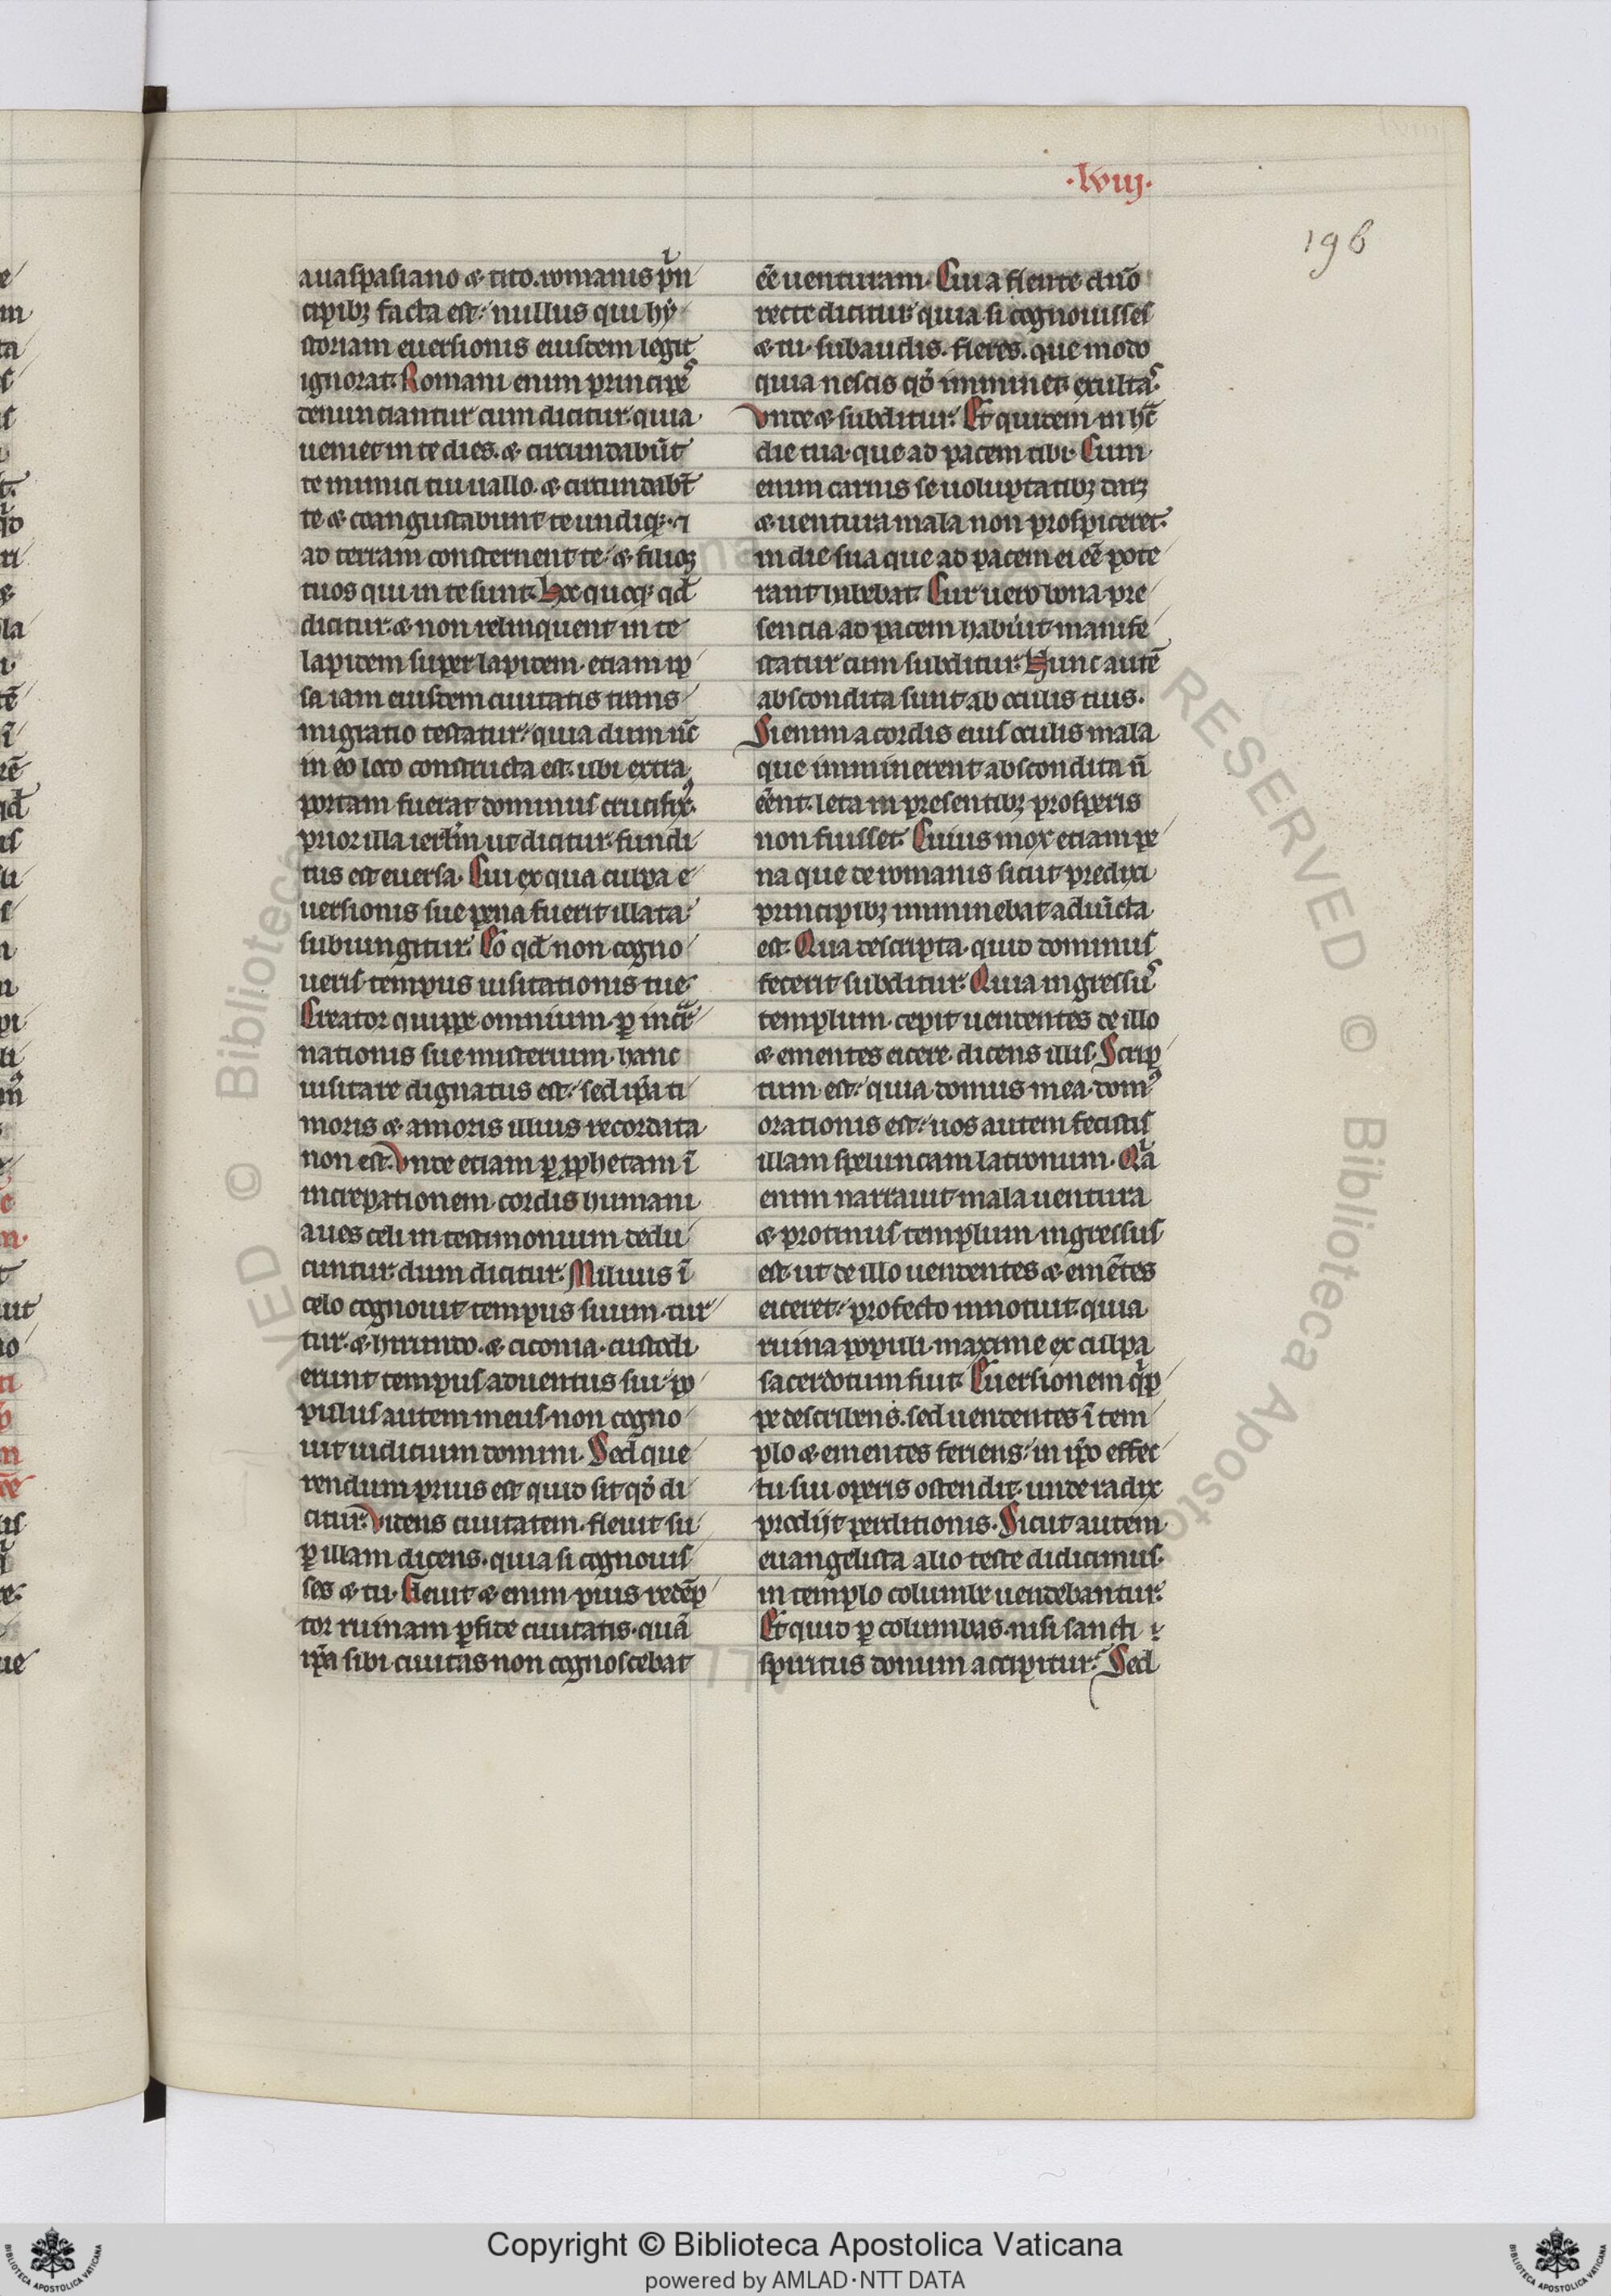 ·lviij·
196
auaspasiano & tito. romanis pⁱn
cipibꝫ facta est: nullus qui hy
storiam euersionis eiusdem legit
ignorat. Romani enim principeˢ
denunciantur cum dicitur. quia
uenient in te dies. & circundabūt
te inimici tui uallo. & circundabt̄
te & coangustabunt te undiqꝫ. ⁊
ad terram consternent te. & filios
tuos qui in te sunt. Hoc quoqꝫ qd̄
dicitur. & non relinquent in te
lapidem super lapidem. etiam ip
sa iam eiusdem ciuitatis trans
migratio testatur: quia dum nc̄
in eo loco constructa est. ubi extra
portam fuerat dominus crucifixꝰ.
prior illa ierlm̄ ut dicitur. fundi
tus est euersa. Cui ex qua culpa e
uersionis sue pena fuerit illata:
subiungitur. Eo qd̄ non cogno
ueris tempus uisitationis tue.
Creator quippe omnium. ꝑ incᵃr
nationis sue misterium. hanc
uisitare dignatus est: sed ip̄a ti
moris & amoris illius recordata
non est. Vnde etiam ꝑ ꝓphetam ī
increpationem cordis humani
aues celi in testimonium dedu
cuntur. dum dicitur. Miluus ī
celo cognouit tempus suum. tur
tur. & hirundo. & ciconia. custodi
erunt tempus aduentus sui. po
pulus autem meus. non cogno
uit iudicium domini. Sed que
rendum prius est quid sit qᵒd di
citur. Videns ciuitatem. fleuit su
ꝑ illam dicens. quia si cognouis
ses & tu. Fleuit & enim pius redēp
tor ruinam ꝑfide ciuitatis. quā
ip̄a sibi ciuitas non cognoscebat
ēē uenturam. Cui a flente dn̄o
recte dicitur. quia si cognouisses
& tu. subaudis. fleres. que modo
quia nescis qᵒd imminet. exultaˢ.
Vnde & subditur. Et quidem in hᵃc
die tua. que ad pacem tibi. Cum
enim carnis se uoluptatibꝫ daꝫ
& uentura mala non prospiceret.
in die sua que ad pacem ei ēē pote
rant habebat. Cur uero bona pre
sencia ad pacem habuit. manife
statur cum subditur. Nunc autē
abscondita sunt ab oculis tuis.
Si enim a cordis eius oculis mala
que imminerent abscondita n̄
ēēnt. leta in presentibꝫ prosperis
non fuisset. Cuius mox etiam pe
na que de romanis sicut predixi
principibꝫ imminebat adiūcta
est. Qua descripta. quid dominus
fecerit subditur. Quia ingressuˢ
templum. cepit uendentes de illo
& ementes eicere. dicens illis. Scrip
tum est: quia domus mea. domꝰ
orationis est: uos autem fecistis
illam speluncam latronum. Qᵘi
enim narrauit mala uentura
& protinus templum ingressus
est. ut de illo uendentes & emētes
eiceret: profecto innotuit. quia
ruina populi. maxime ex culpa
sacerdotum fuit. Euersionem qⁱp
pe describens. sed uendentes ī tem
plo & ementes feriens: in ip̄o effec
tu sui operis ostendit. unde radix
prodijt perditionis. Sicut autem
euangelista alio teste didicimus.
in templo columbe uendebantur.
Et quid ꝑ columbas. nisi sancti
spiritus donum accipitur: Sed
Copyright © Biblioteca Apostolica Vaticana
powered by AMLAD·NTT DATA